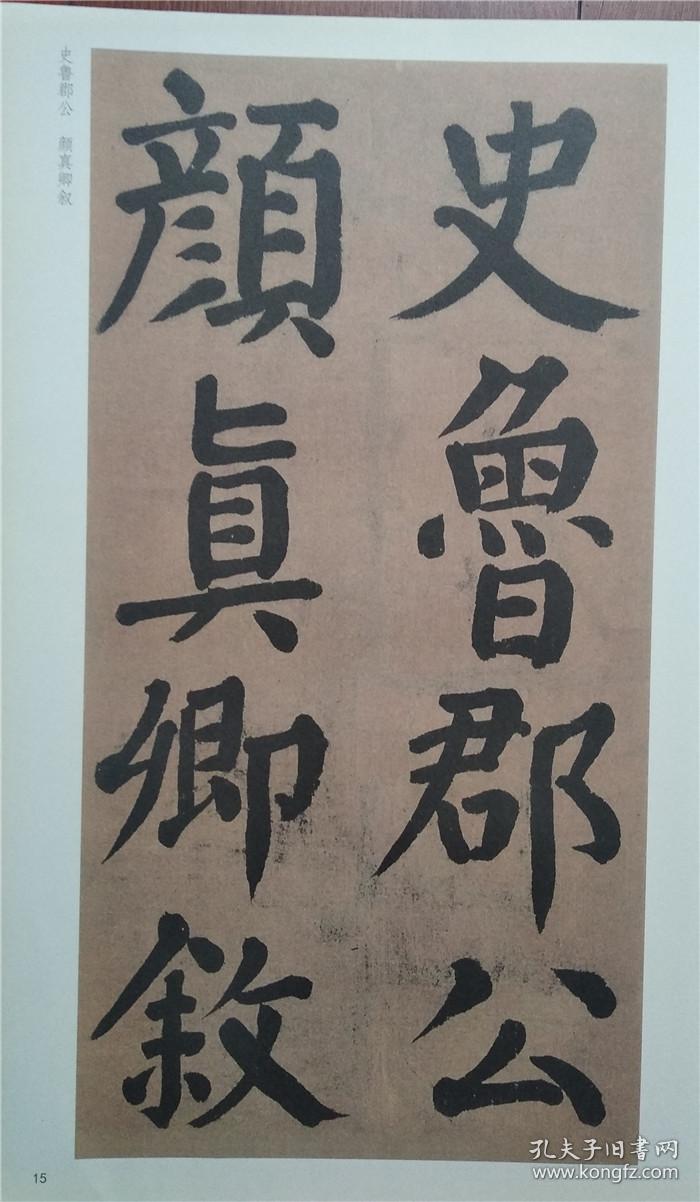 史魯郡公
顏真卿敘
史魯郡公 顏真卿叙
15
孔夫子旧書网
www.kongfz.com